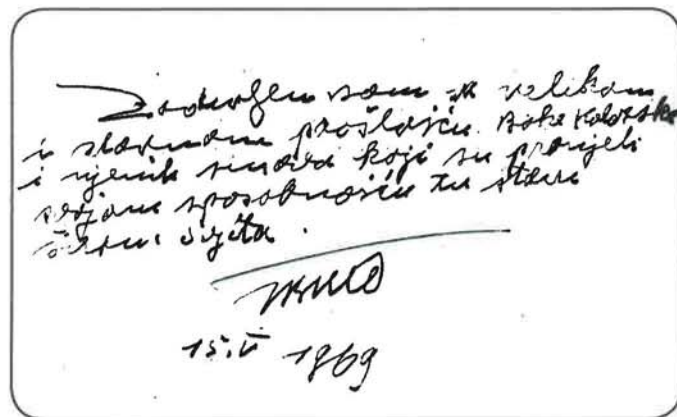 Zadivljen sam velikom
i slavnom prošlošću Boke Kotorske
i njenih sinova koji su pronijeli
svojom sposobnošću tu slavu
širom svijeta.
15. V 1969